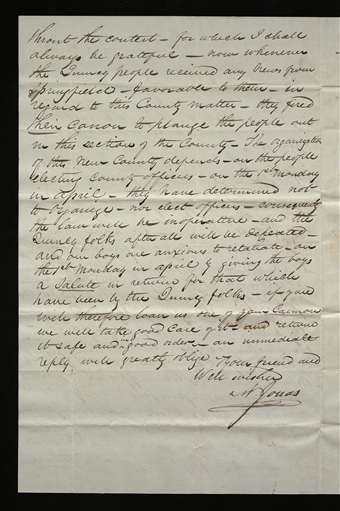 thro'out the contest – for which I shall
always be grateful – now whenever
the Quincy people received any news from
Springfield – favorable to them – in
regard to this County matter – they fired
their Canon to plauge the people out
in this section of the County – The organization
of this New County depends – on the people
electing County officers – on the 1st Monday
in April – they have determined not
to Organize – nor elect officers – consequently
the law will be inoperative – and the
Quincy folks after all will be defeated –
and our boys are anxious to retaliate – on
the 1st Monday in April by giving the boys
a Salute in return for that which
have been by the Quincy folks – if you
will therefore loan us one of your Cannon
we will take good care of it – and return
it safe and in good order – an immediate
reply will greatly oblige Your friend and
Well wisher
A Jonas